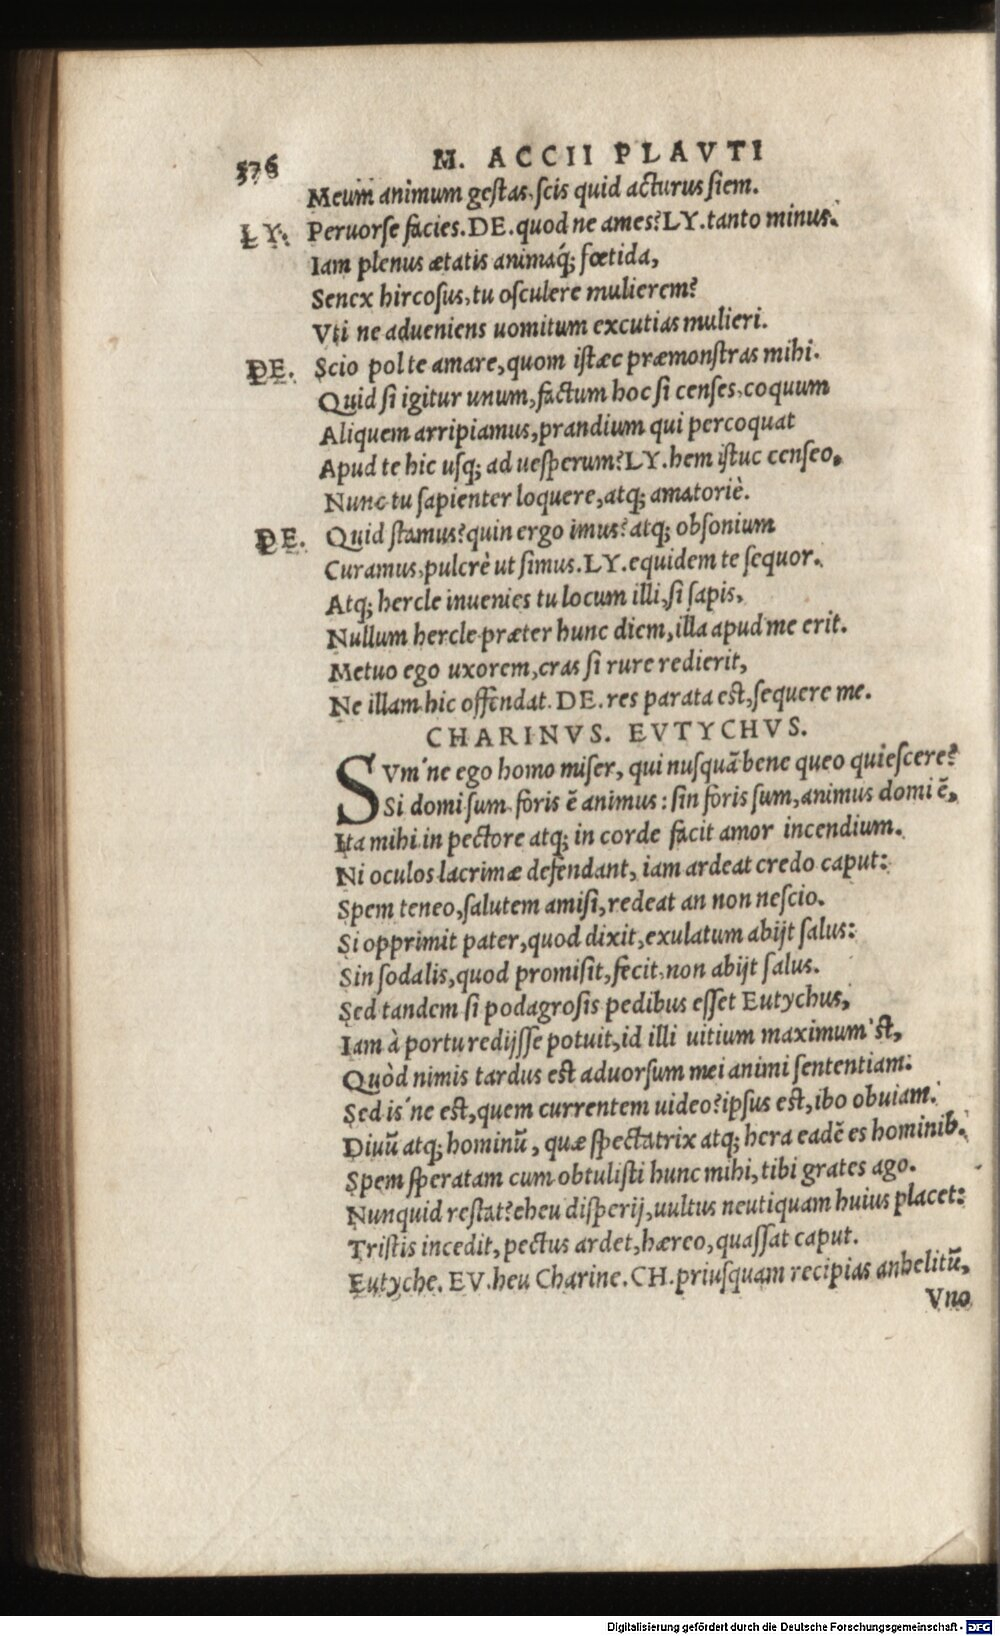 576 M. ACCII PLAVTI
Meum animum gestas, scis quid acturus siem.
LY. Peruorse facies. DE. quod ne ames? LY. tanto minus.
Iam plenus ætatis animaq́; fœtida,
Senex hircosus, tu osculere mulierem?
Vti ne adueniens uomitum excutias mulieri.
DE. Scio pol te amare, quom istæc præmonstras mihi.
Quid si igitur unum, factum hoc si censes, coquum
Aliquem arripiamus, prandium qui percoquat
Apud te hic usq; ad uesperum? LY. hem istuc censeo.
Nunc tu sapienter loquere, atq; amatoriè.
DE. Quid stamus? quin ergo imus? atq; obsonium
Curamus, pulcrè ut simus. LY. equidem te sequor.
Atq; hercle inuenies tu locum illi, si sapis,
Nullum hercle præter hunc diem, illa apud me erit.
Metuo ego uxorem, cras si rure redierit,
Ne illam hic offendat. DE. res parata est, sequere me.
CHARINVS. EVTYCHVS.
SVm'ne ego homo miser, qui nusquā bene queo quiescere?
Si domi sum foris ē animus: sin foris sum, animus domi ē,
Ita mihi in pectore atq; in corde facit amor incendium.
Ni oculos lacrimæ defendant, iam ardeat credo caput:
Spem teneo, salutem amisi, redeat an non nescio.
Si opprimit pater, quod dixit, exulatum abijt salus:
Sin sodalis, quod promisit, fecit, non abijt salus.
Sed tandem si podagrosis pedibus esset Eutychus,
Iam à portu redijsse potuit, id illi uitium maximum'st,
Quòd nimis tardus est aduorsum mei animi sententiam:
Sed is'ne est, quem currentem uideo? ipsus est, ibo obuiam.
Diuū atq; hominū, quæ spectatrix atq; hera eadē es hominib.
Spem speratam cum obtulisti hunc mihi, tibi grates ago.
Nunquid restat? eheu disperij, uultus neutiquam huius placet:
Tristis incedit, pectus ardet, hæreo, quassat caput.
Eutyche. EV. heu Charine. CH. priusquam recipias anhelitū,
Vno
Digitalisierung gefördert durch die Deutsche Forschungsgemeinschaft - DFG